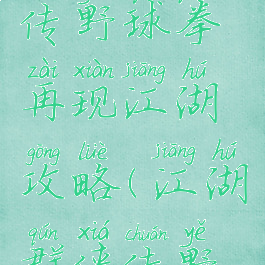 传野球拳
zài xiàn jiāng hú
再现江湖
gōng lüè jiāng hú
攻略(江湖
qún xiá chuán yě
群侠传野